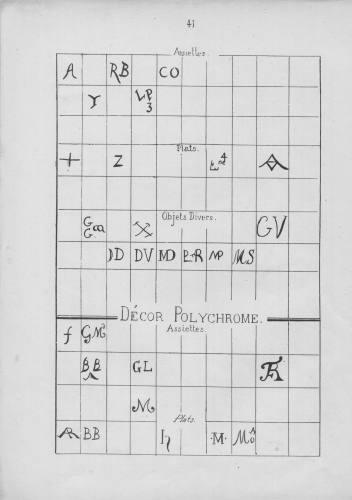 41
Assiettes.
A RB CO
Y LP
3
Plats.
+ Z 4
Objets Divers.
G GV
G
DD DV MD PR MP MS
DÉCOR POLYCHROME.
Assiettes.
f GM
BB GL
M
Plats.
AR BB h ·M· Mo